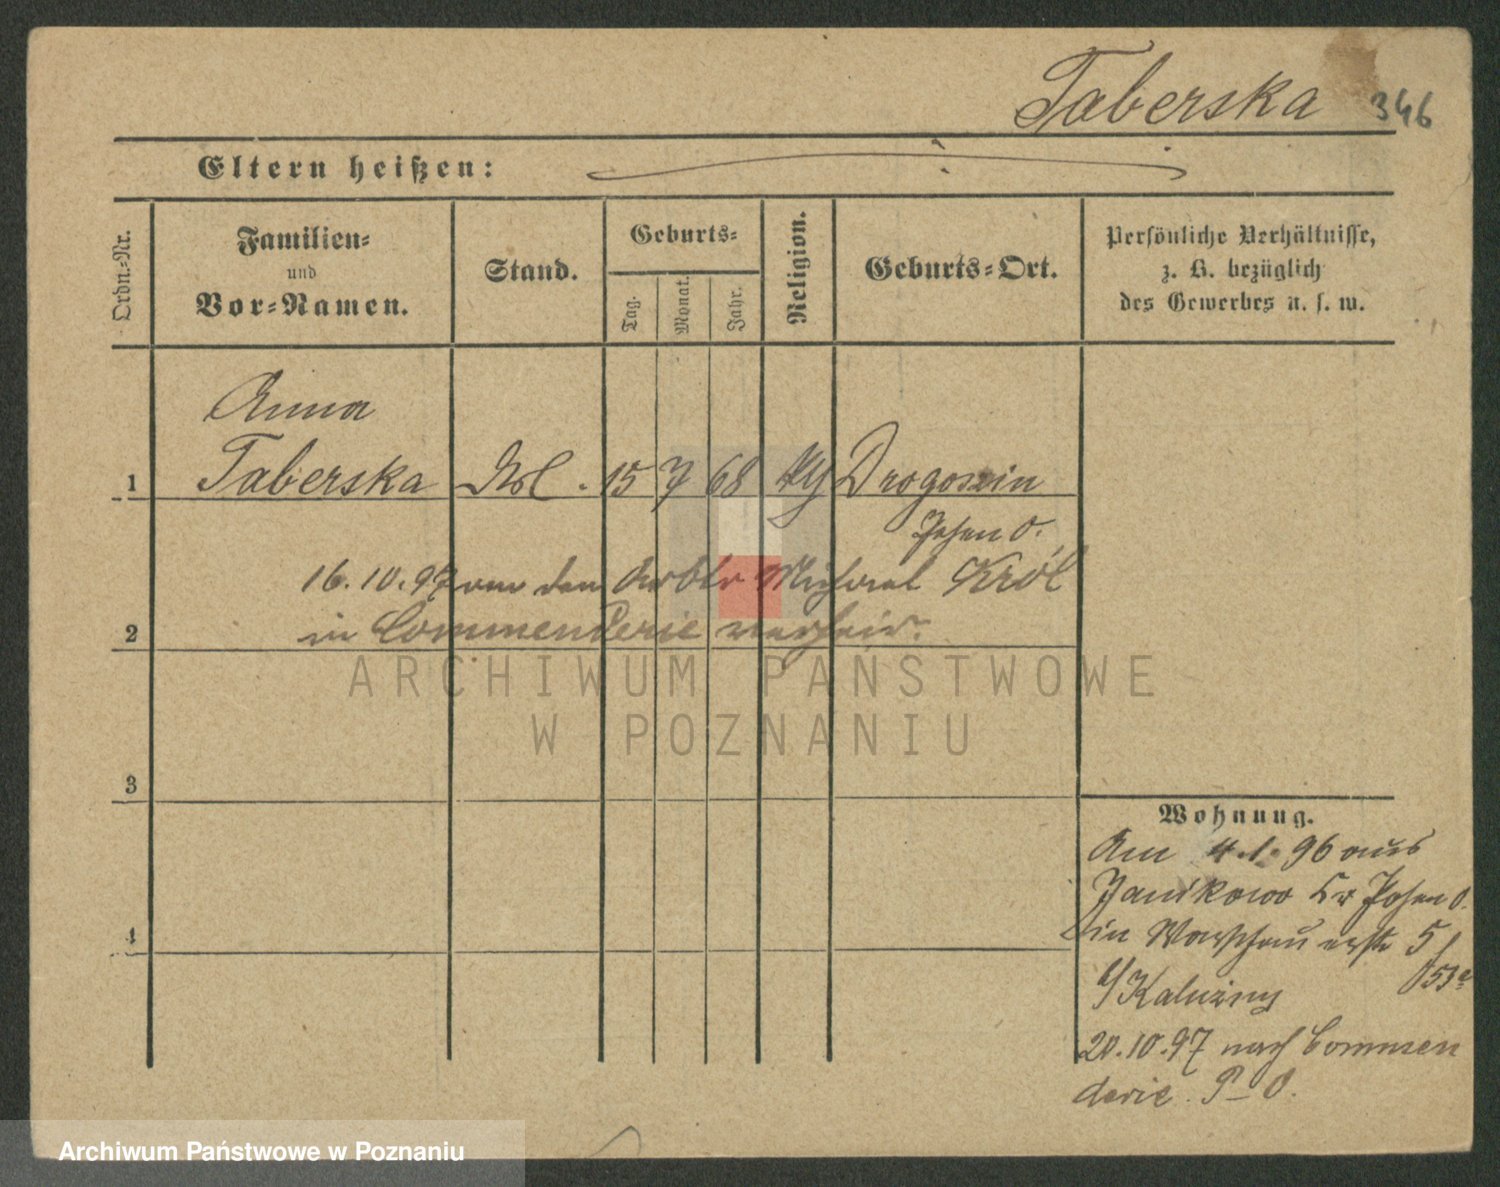 Taberska 346
Eltern heißen:
Ordn.-Nr.
Familien-
und
Vor-Namen.
Stand.
Geburts-
Tag.
Monat.
Jahr.
Religion.
Geburts-Ort.
Persönliche Verhältnisse,
z. B. bezüglich
des Gewerbes u. s. w.
Anna
1 Taberska 15 7 68 Drogoszin
Posen O.
16.10.97 von den Arbtr Michael Król
2 in Commenderie verheir.
3
4
Wohnung.
Am 4.1.96 aus
Janikowo Kr Posen O.
in Warschauerstr 5
b/Kaluzny
20.10.97 nach Commen
derie P O.
ARCHIWUM PAŃSTWOWE
W POZNANIU
Archiwum Państwowe w Poznaniu